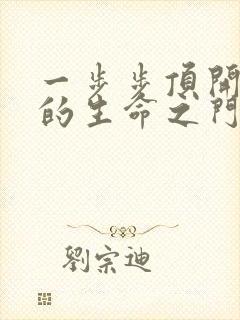 一步步頂開
的生命之門
劉宗迪